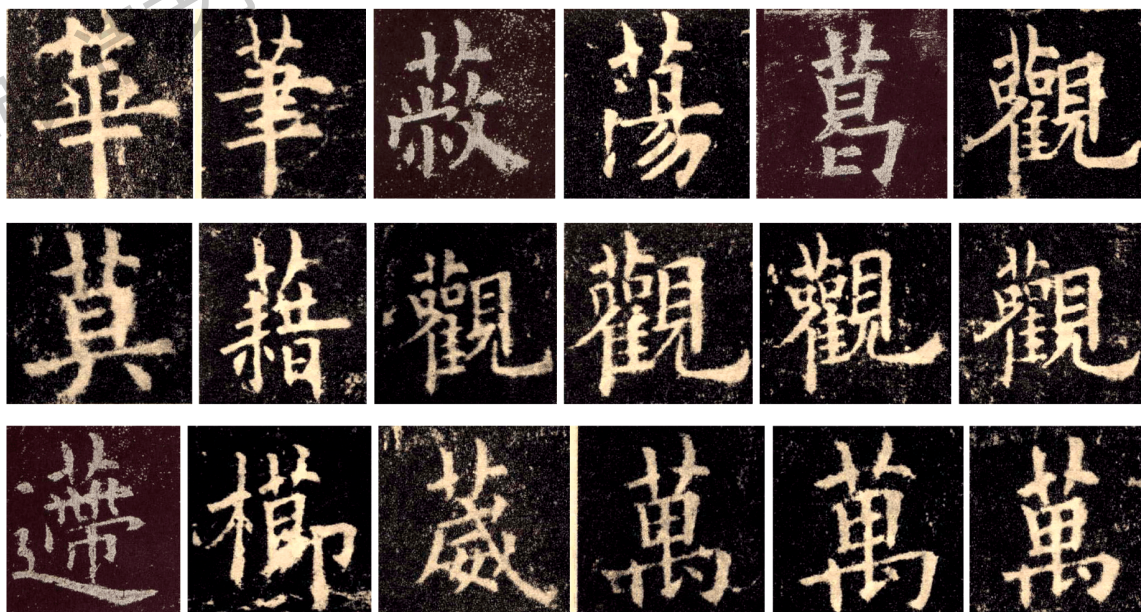 華 筆 蔽 蕩 葛 觀
莫 藉 觀 觀 觀 觀
櫛 葳 萬 萬 萬